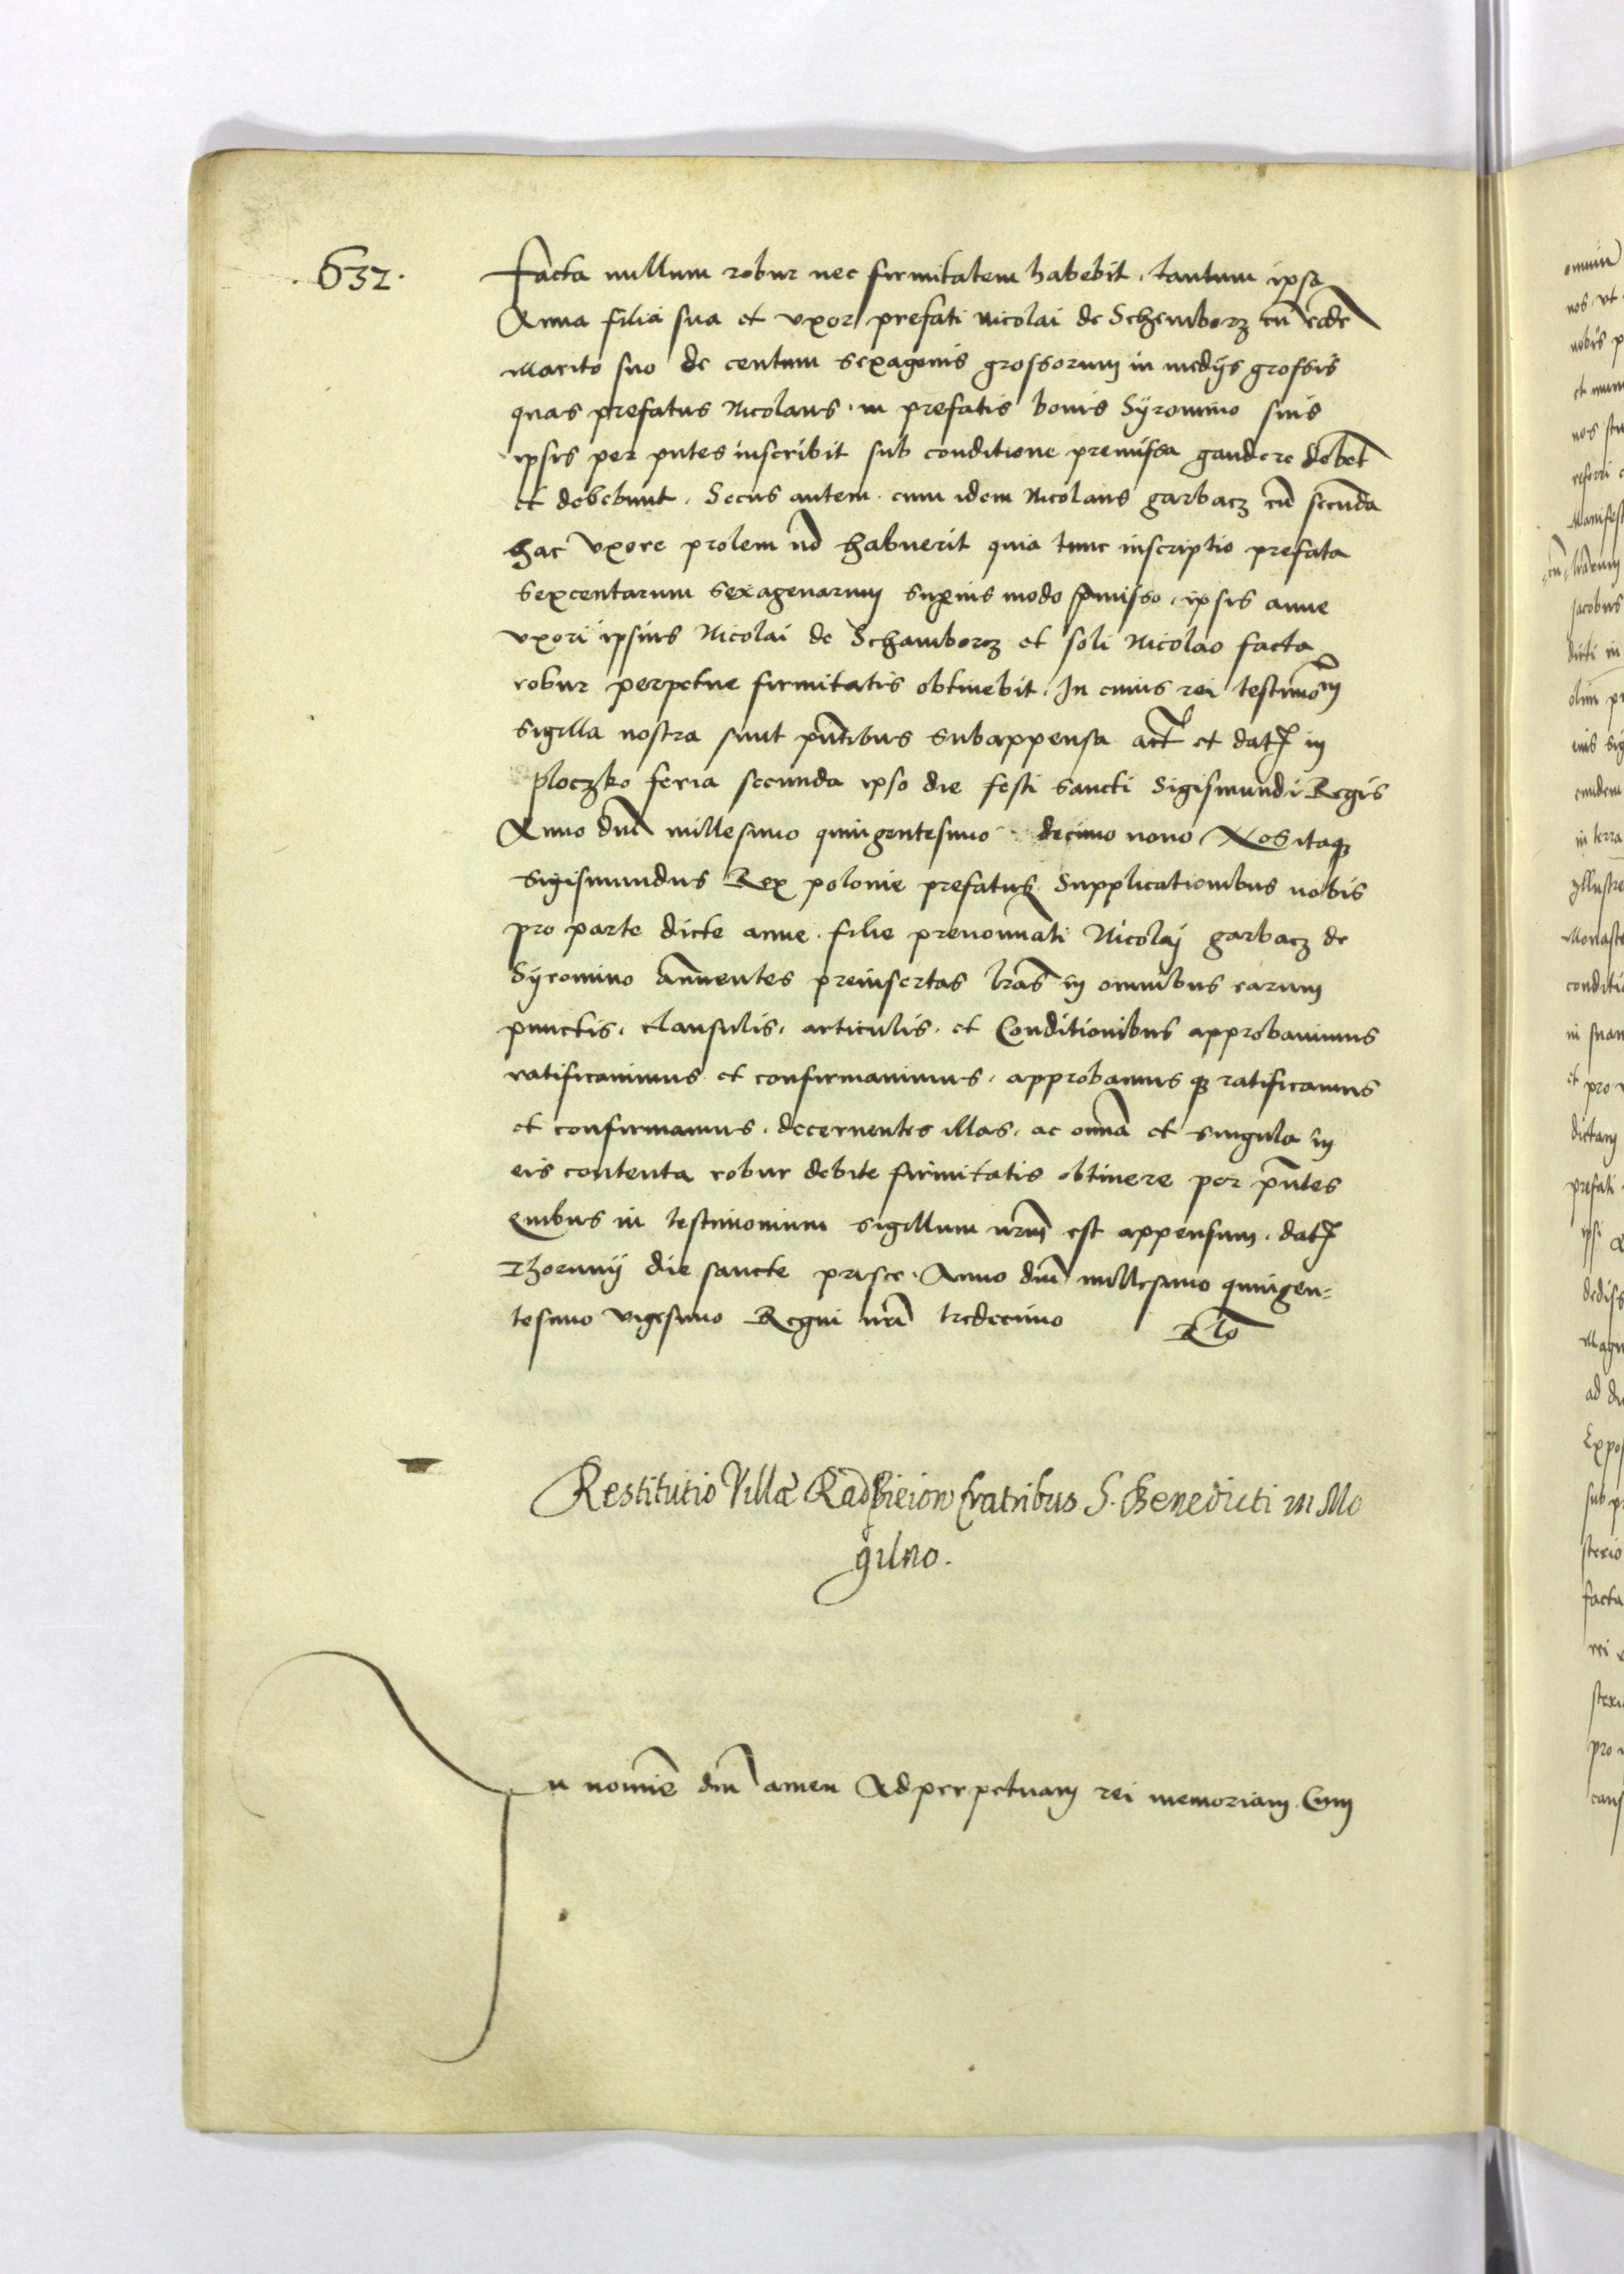 632.
Facta nullum robur nec firmitatem habebit, tantum ipsa
Anna filia sua et uxor prefati nicolai de Schemborz cū eodē
marito suo de centum sexagenis grossorum in medijs grossis
quas prefatus Nicolaus in prefatis bonis Syromino suis
ipsis per pn̄tes inscribit sub conditione premissa gaudere debet
et debebunt. Secus autem cum idem Nicolaus garbacz cū secunda
hac uxore prolem nō habuerit quia tunc inscriptio prefata
sexcentarum sexagenarum suꝑius modo p̄misso, ipsis anne
uxori ipsius Nicolai de Schamborz et soli Nicolao facta
robur perpetue firmitatis obtinebit. In cuius rei testimōm
sigilla nostra sunt pn̄tibus subappensa act̄ et dat̄ in
Ploczko feria secunda ipso die festi sancti Sigismundi Regis
Anno dn̄i millesimo quingentesimo decimo nono Nos itaqꝫ
Sigismundus Rex polonie prefatus Supplicationibus nobis
pro parte dicte anne filie prenomīati Nicolaj garbacz de
Syromino an̄uentes preinsertas lr̄as in omnibus earum
punctis, clausulis, articulis, et Conditionibus approbauimus
ratificauimus et confirmauimus, approbamus qꝫ ratificamus
et confirmamus, decernentes illas, ac omn̄a et singula in
eis contenta robur debite firmitatis obtinere per pn̄tes
quibus in testimonium sigillum nr̄m est appensum. dat̄
Thorunij die sancte prisce. Anno dn̄i millesimo quingen=
tesimo vigesimo Regni nr̄i tredecimo
Restitutio Villæ Radzieiow fratribus S. Benedicti in Mo
gilno.
In nomīe dn̄i amen Ad perpetuam rei memoriam. Cum